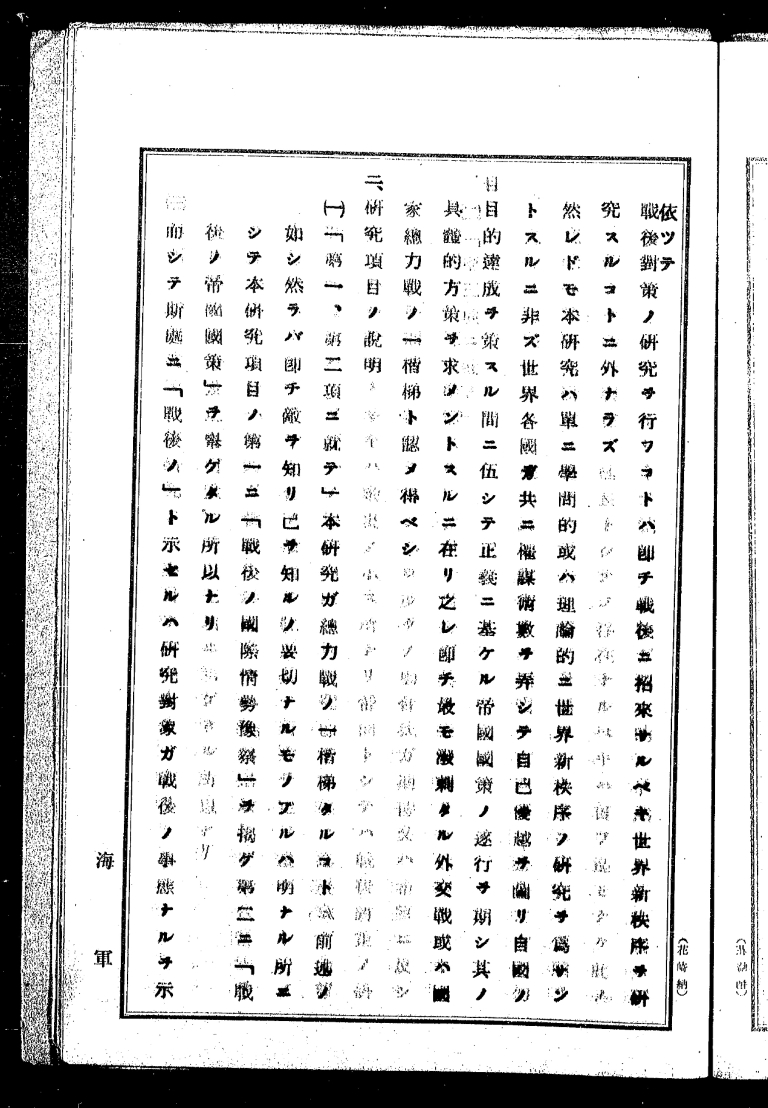 依ツテ
戰後對策ノ研究ヲ行フコトハ卽チ戰後ニ招來サルベキ世界新秩序ヲ研
究スルコトニ外ナラズ
然レドモ本研究ハ單ニ學問的或ハ理論的ニ世界新秩序ノ研究ヲ爲サン
トスルニ非ズ世界各國ガ共ニ權謀術數ヲ弄シテ自己優越ヲ圖リ自國ノ
目的達成ヲ策スル間ニ伍シテ正義ニ基ケル帝國國策ノ遂行ヲ期シ其ノ
具體的方策ヲ求メントスルニ在リ之レ卽チ最モ潑剌タル外交戰或ハ國
家總力戰ノ一楷梯ト認メ得ベシ
二、研究項目ノ說明
(一)「第一、第二項ニ就テ」本研究ガ總力戰ノ一楷梯タルコト前述ノ
如シ然ラバ卽チ敵ヲ知リ己ヲ知ルノ要切ナルモノアルハ明ナル所ニ
シテ本研究項目ノ第一ニ「戰後ノ國際情勢豫察」ヲ揭ゲ第二ニ「戰
後ノ帝國國策」ヲ擧ゲタル所以ナリ
而シテ斯處ニ「戰後ノ」ト示セルハ研究對象ガ戰後ノ事態ナルヲ示
海軍